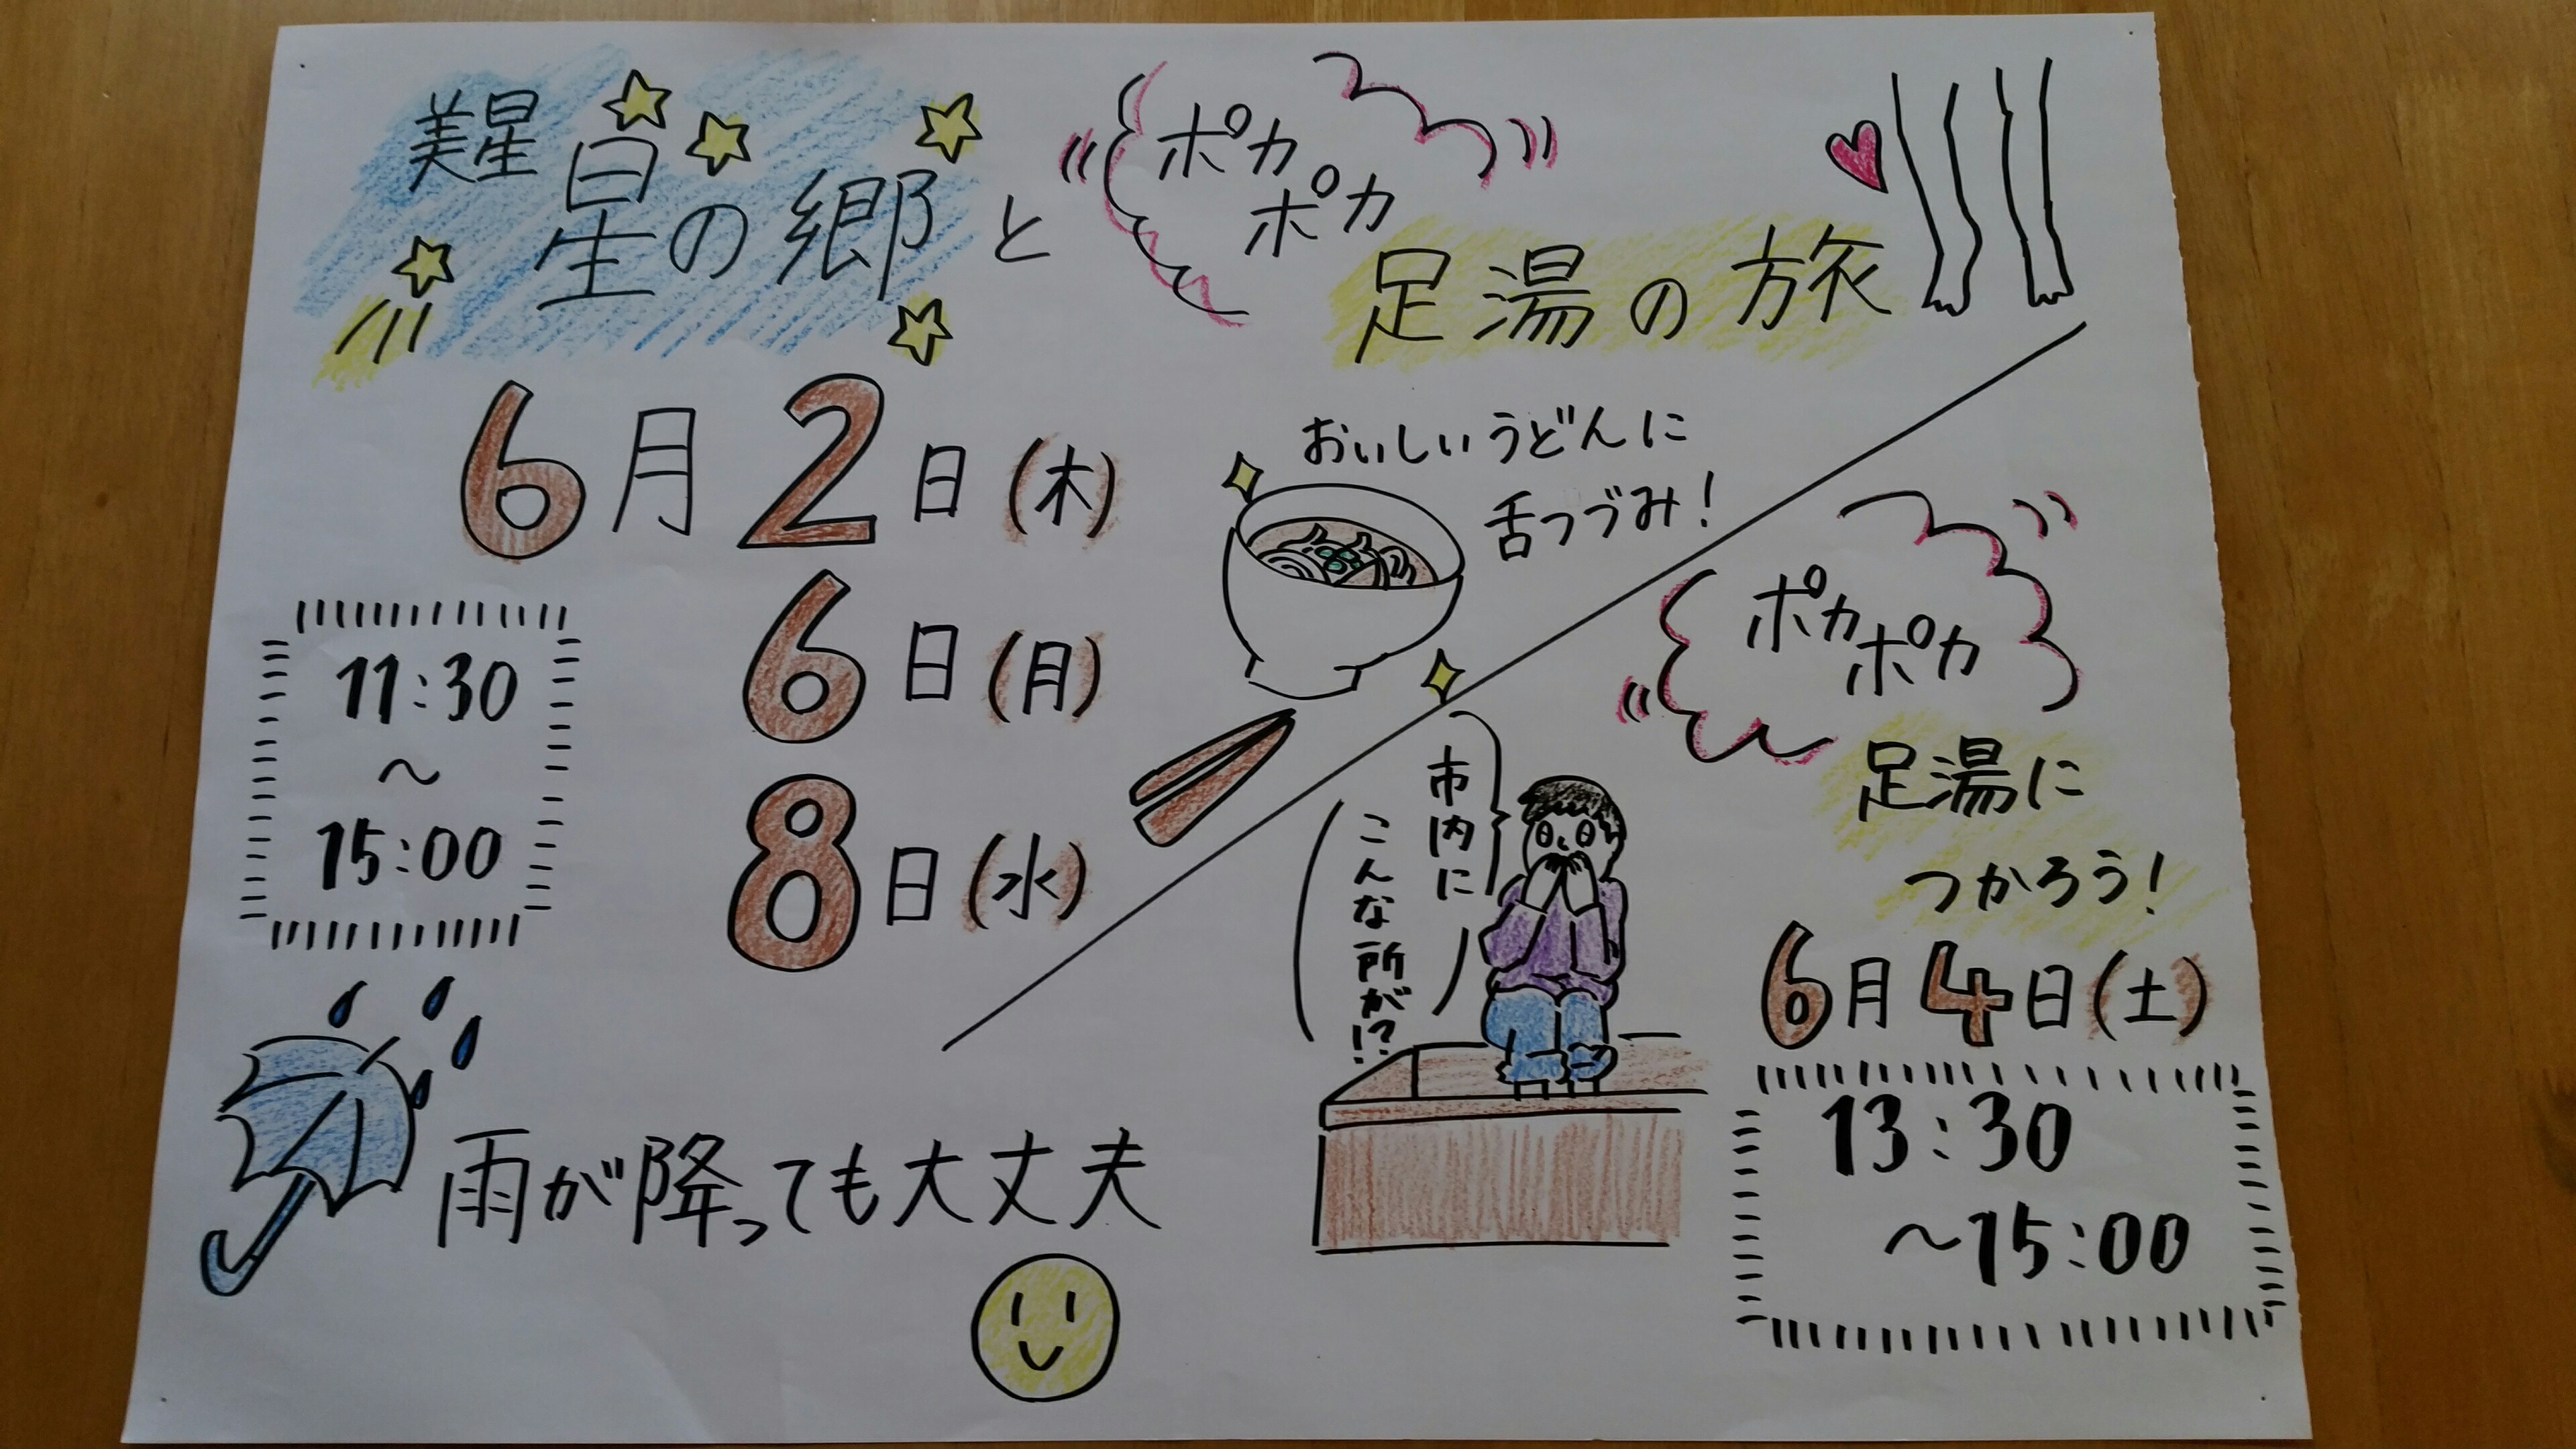 美星 星の郷と
ポカ
ポカ
足湯の旅
6月2日(木)
6日(月)
8日(水)
11:30
～
15:00
おいしいうどんに
舌つづみ!
雨が降っても大丈夫
ポカ
ポカ
足湯に
つかろう!
市内に
こんな所が!?
6月4日(土)
13:30
～15:00